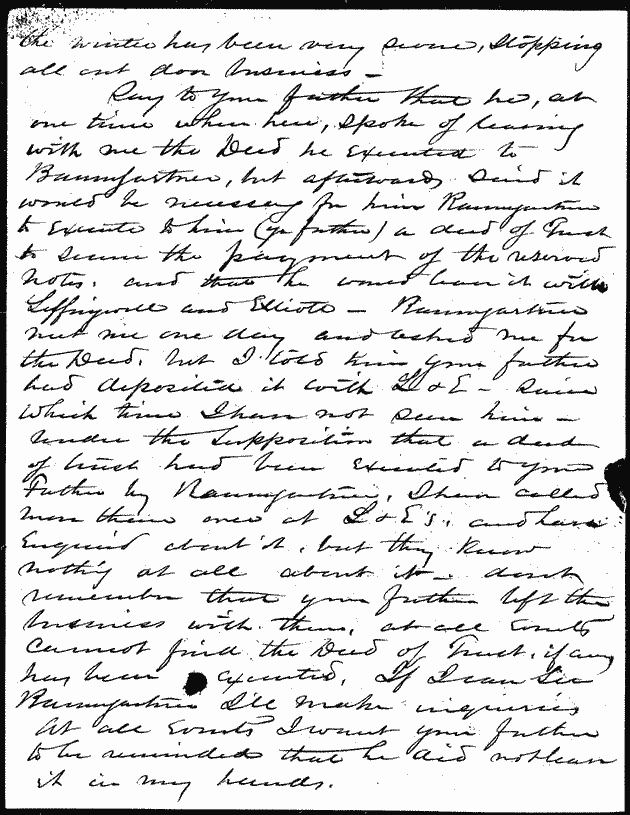 the winter has been very severe, stopping
all out door business –
Say to your father that he, at
one time when here, spoke of leaving
with me the Deed he Executed to
Baumgartner, but afterwards said it
would be necessary for him Baumgartner
to Execute to him (yr father) a deed of Trust
to secure the payment of the reserved
notes. and that he would leave it with
Leffingwell and Elliott – Baumgartner
met me one day and asked me for
the Deed, but I told him your father
had deposited it with L & E – since
which time I have not seen him –
under the supposition that a deed
of trust had been executed to your
Father by Baumgartner, I have called
more than once at L & E's. and have
Enquired about it, but they know
nothing at all about it – dont
remember that your father left the
business with them, at all Events
Cannot find the Deed of Trust, if any
has been executed. If I can see
Baumgartner I'll make inquiries
At all Events I want your father
to be reminded that he did not leave
it in my hands.